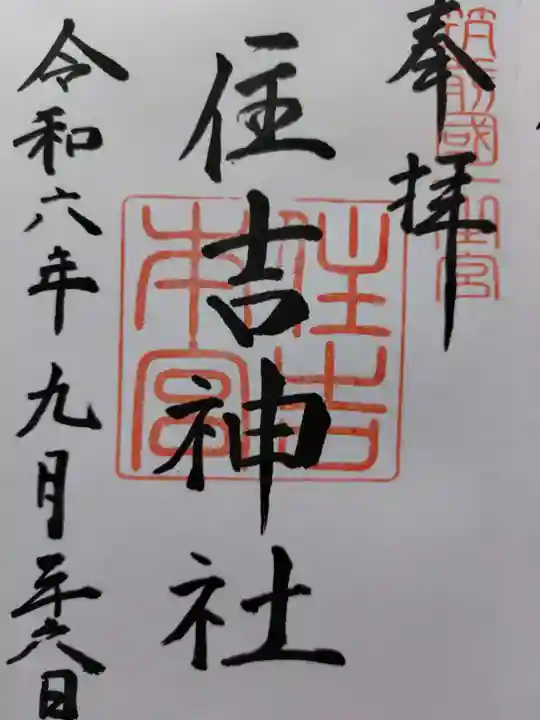 筑前國一之宮
奉拝
住吉神社
住吉
本宮
令和六年九月二十六日